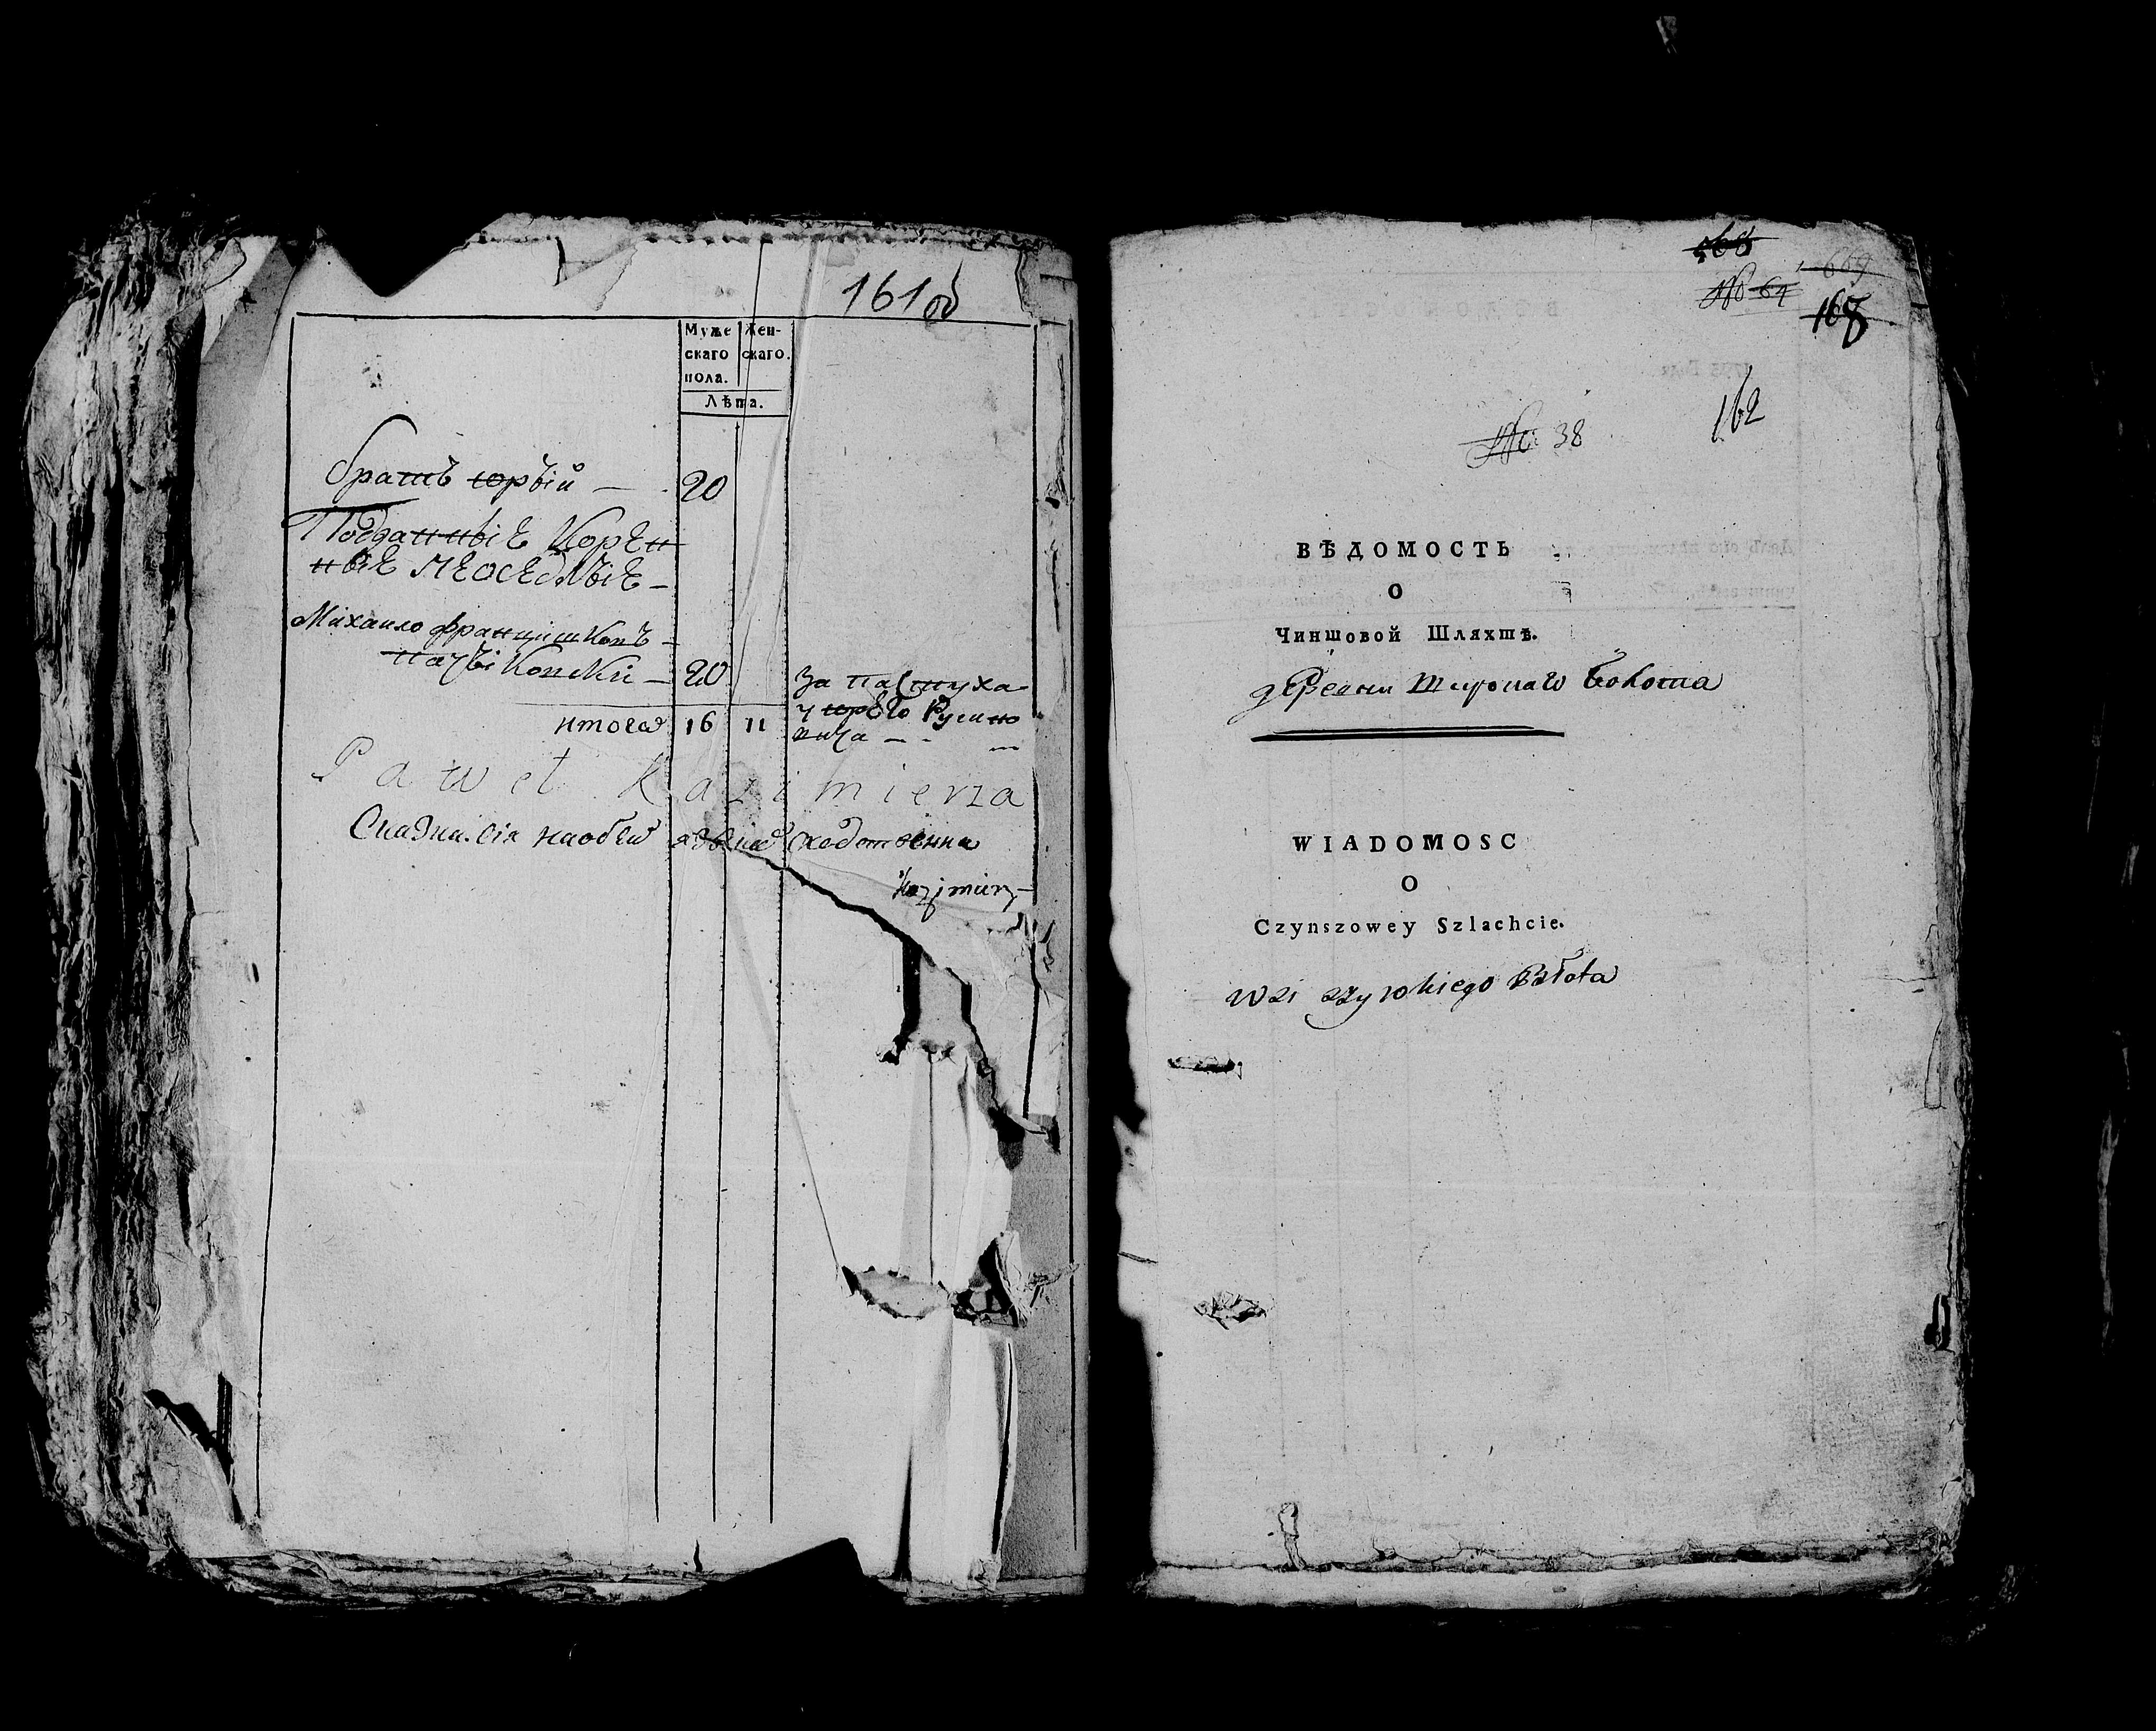 161 об
Муже
скаго
пола.
Жен-
скаго.
Лѣта.
братъ юрьій — 20
Подданныіе Корен
ныіе неоседлыіе —
Михаило францишковъ —
20
За пастуха
у юрего Русино
вича — -
итого 16 11
Paweł Kazimierza
Сказка сія наобею сходственна
Kazimierz
168
669
№ 64
168
162
№ 38
ВѢДОМОСТЬ
О
Чиншовой Шляхтѣ.
деревни Широкаго Болота
WIADOMOSC
O
Czynszowey Szlachcie.
wsi szyrokiego Błota